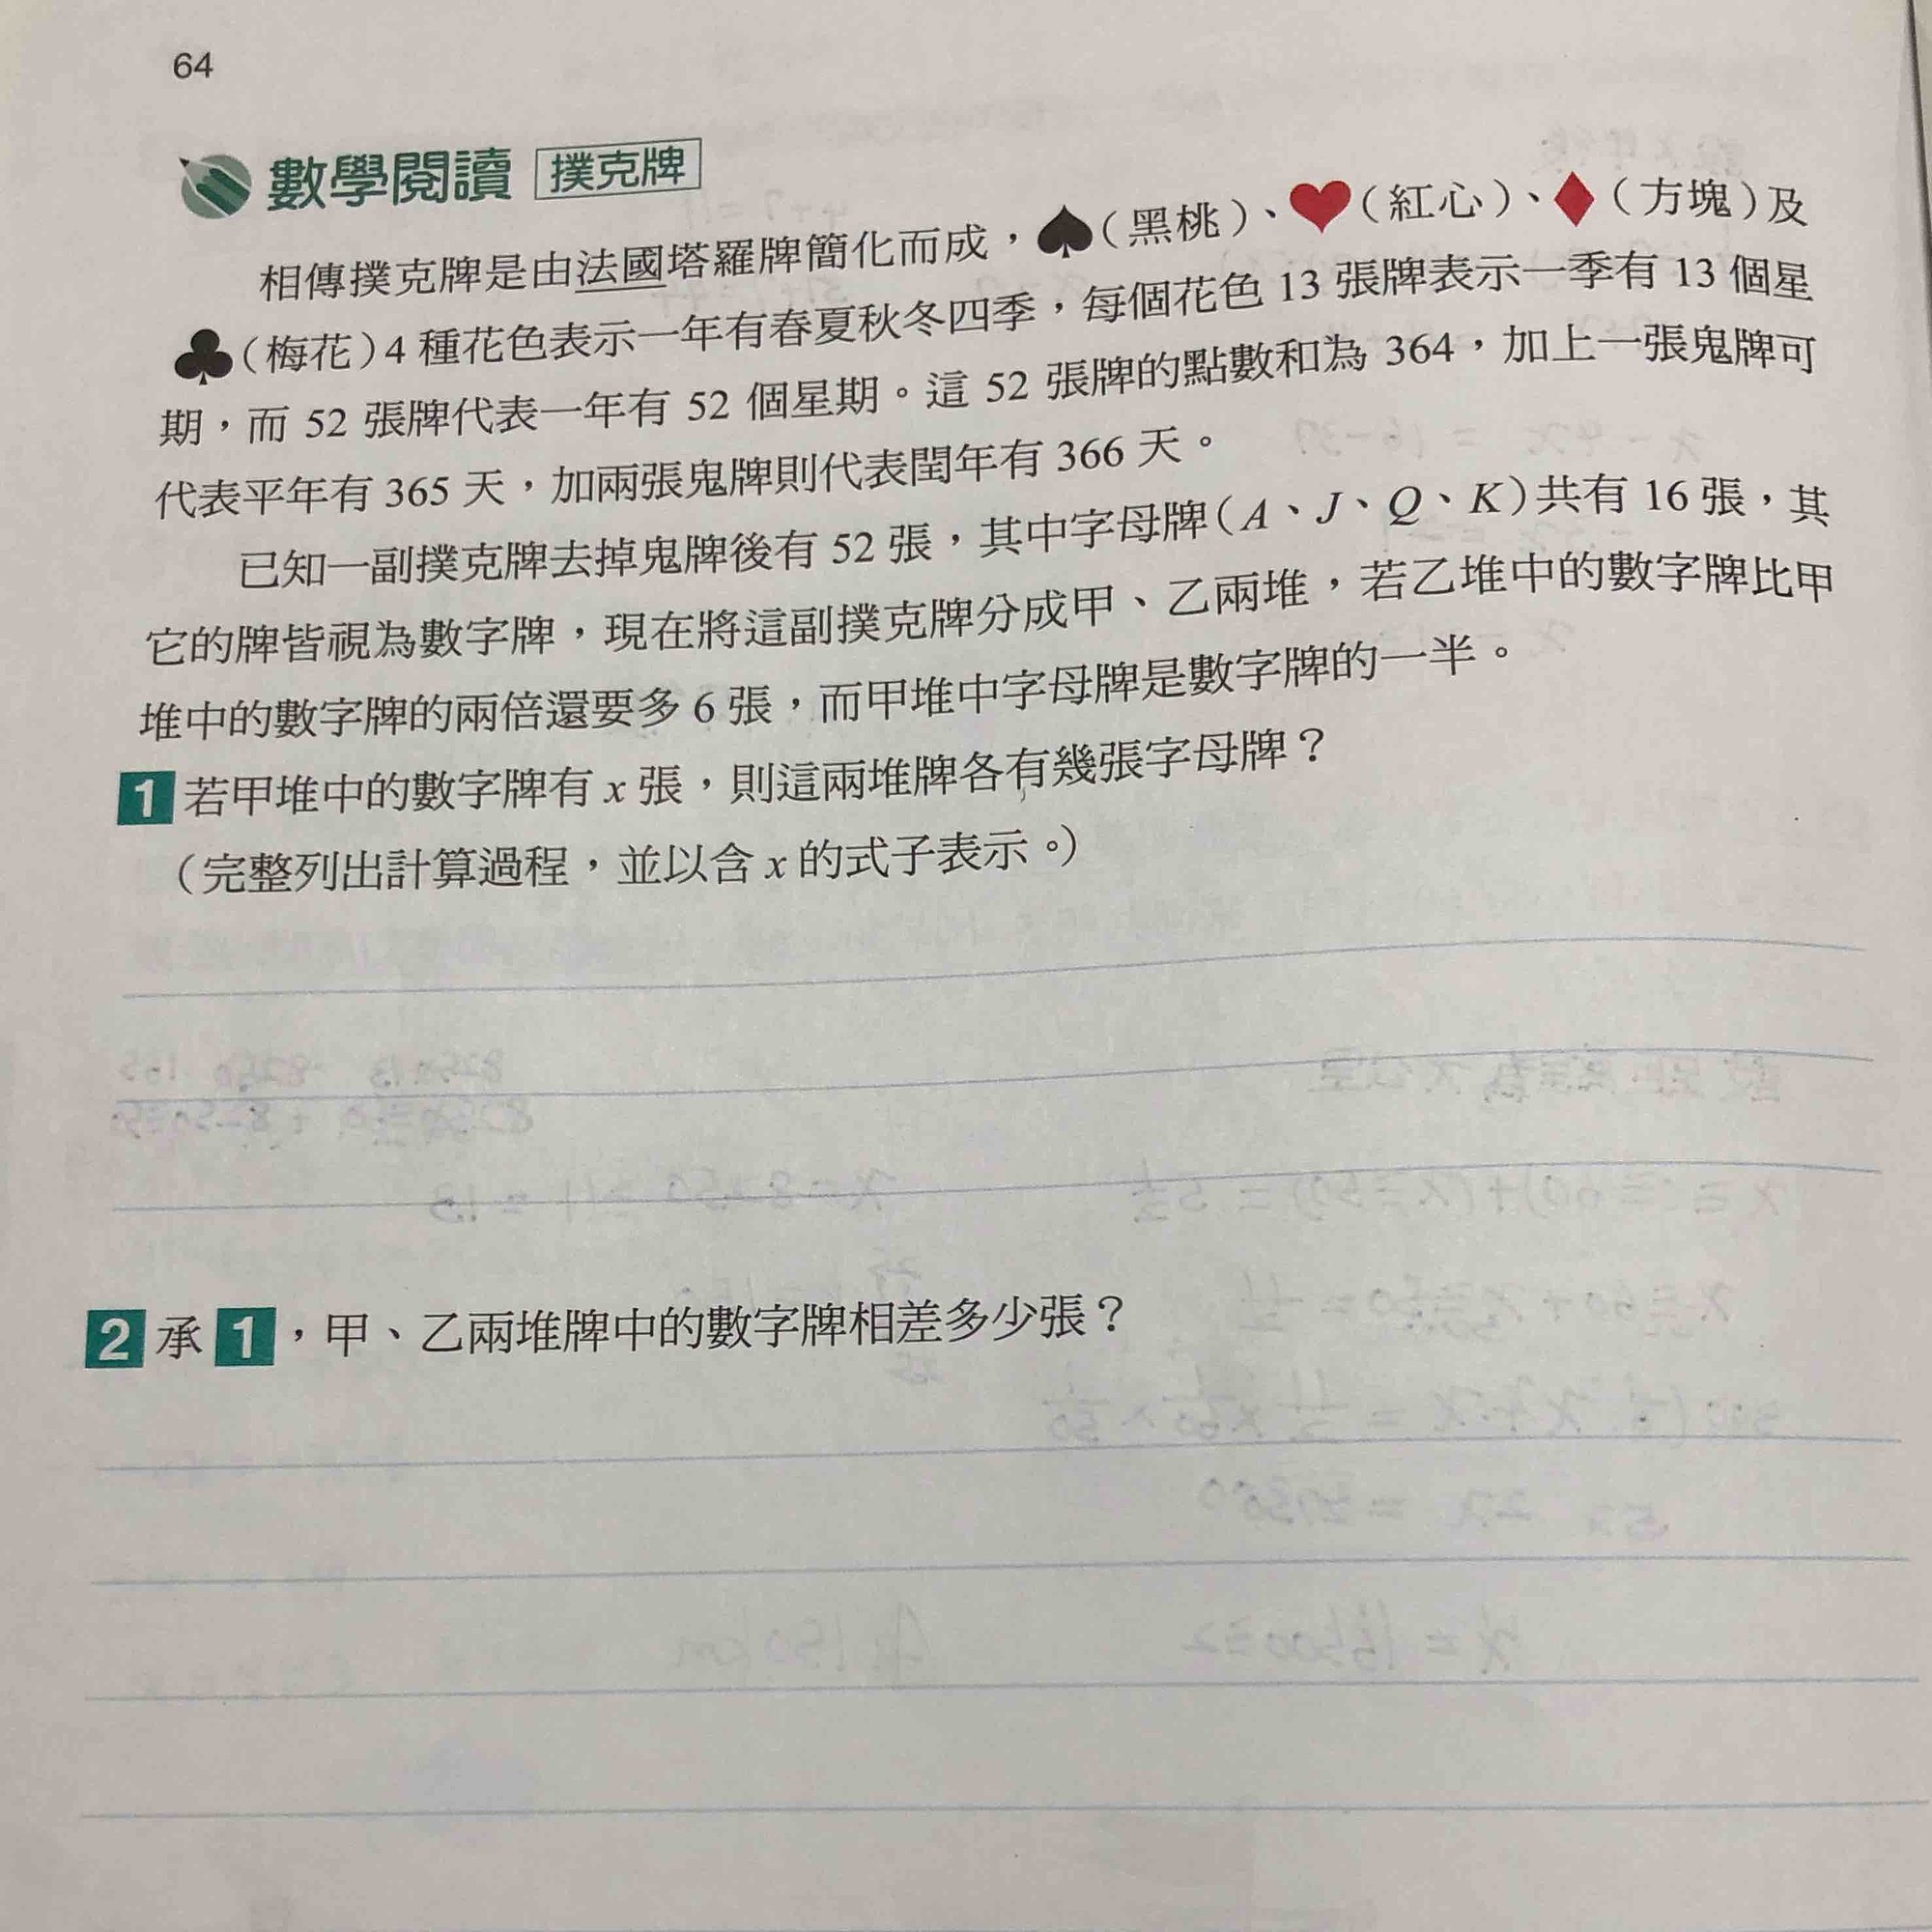 64
數學閱讀 撲克牌
相傳撲克牌是由法國塔羅牌簡化而成，♠（黑桃）、♥（紅心）、♦（方塊）及
♣（梅花）4 種花色表示一年有春夏秋冬四季，每個花色 13 張牌表示一季有 13 個星
期，而 52 張牌代表一年有 52 個星期。這 52 張牌的點數和為 364，加上一張鬼牌可
代表平年有 365 天，加兩張鬼牌則代表閏年有 366 天。
已知一副撲克牌去掉鬼牌後有 52 張，其中字母牌（A、J、Q、K）共有 16 張，其
它的牌皆視為數字牌，現在將這副撲克牌分成甲、乙兩堆，若乙堆中的數字牌比甲
堆中的數字牌的兩倍還要多 6 張，而甲堆中字母牌是數字牌的一半。
1 若甲堆中的數字牌有 x 張，則這兩堆牌各有幾張字母牌？
（完整列出計算過程，並以含 x 的式子表示。）
2 承 1，甲、乙兩堆牌中的數字牌相差多少張？